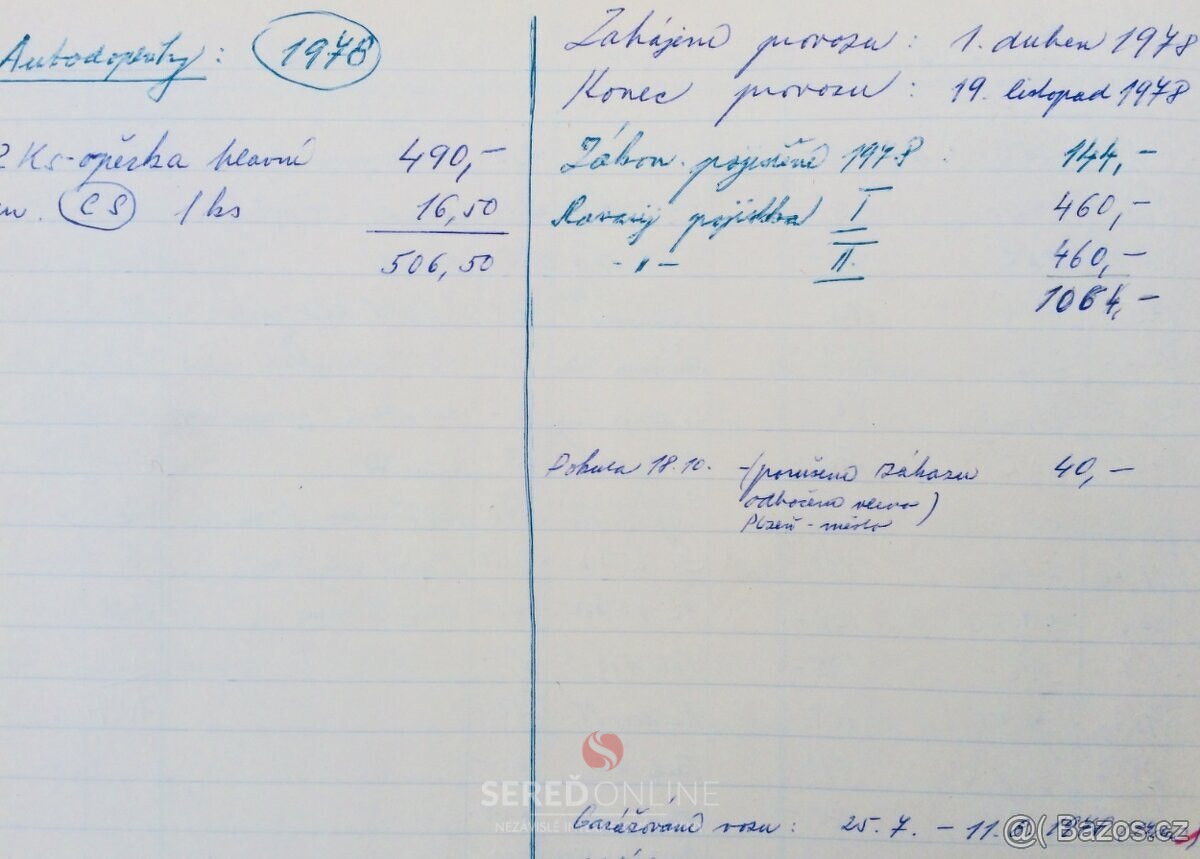 Autodoplňky : 1978
2 Ks-opěrka hlavní 490,-
CS 1 ks 16,50
506,50
Zahájení provozu : 1. duben 1978
Konec provozu : 19. listopad 1978
Zákon. pojištění 1978 144,-
Havarij pojistka I 460,-
-"- II. 460,-
1064,-
Pokuta 18.10. -(porušení zákazu 40,-
odbočení vlevo)
Plzeň-město
SEREĎ ONLINE
NEZÁVISLÉ
Garážování vozu : 25. 7. - 11.
@( Bazos.cz